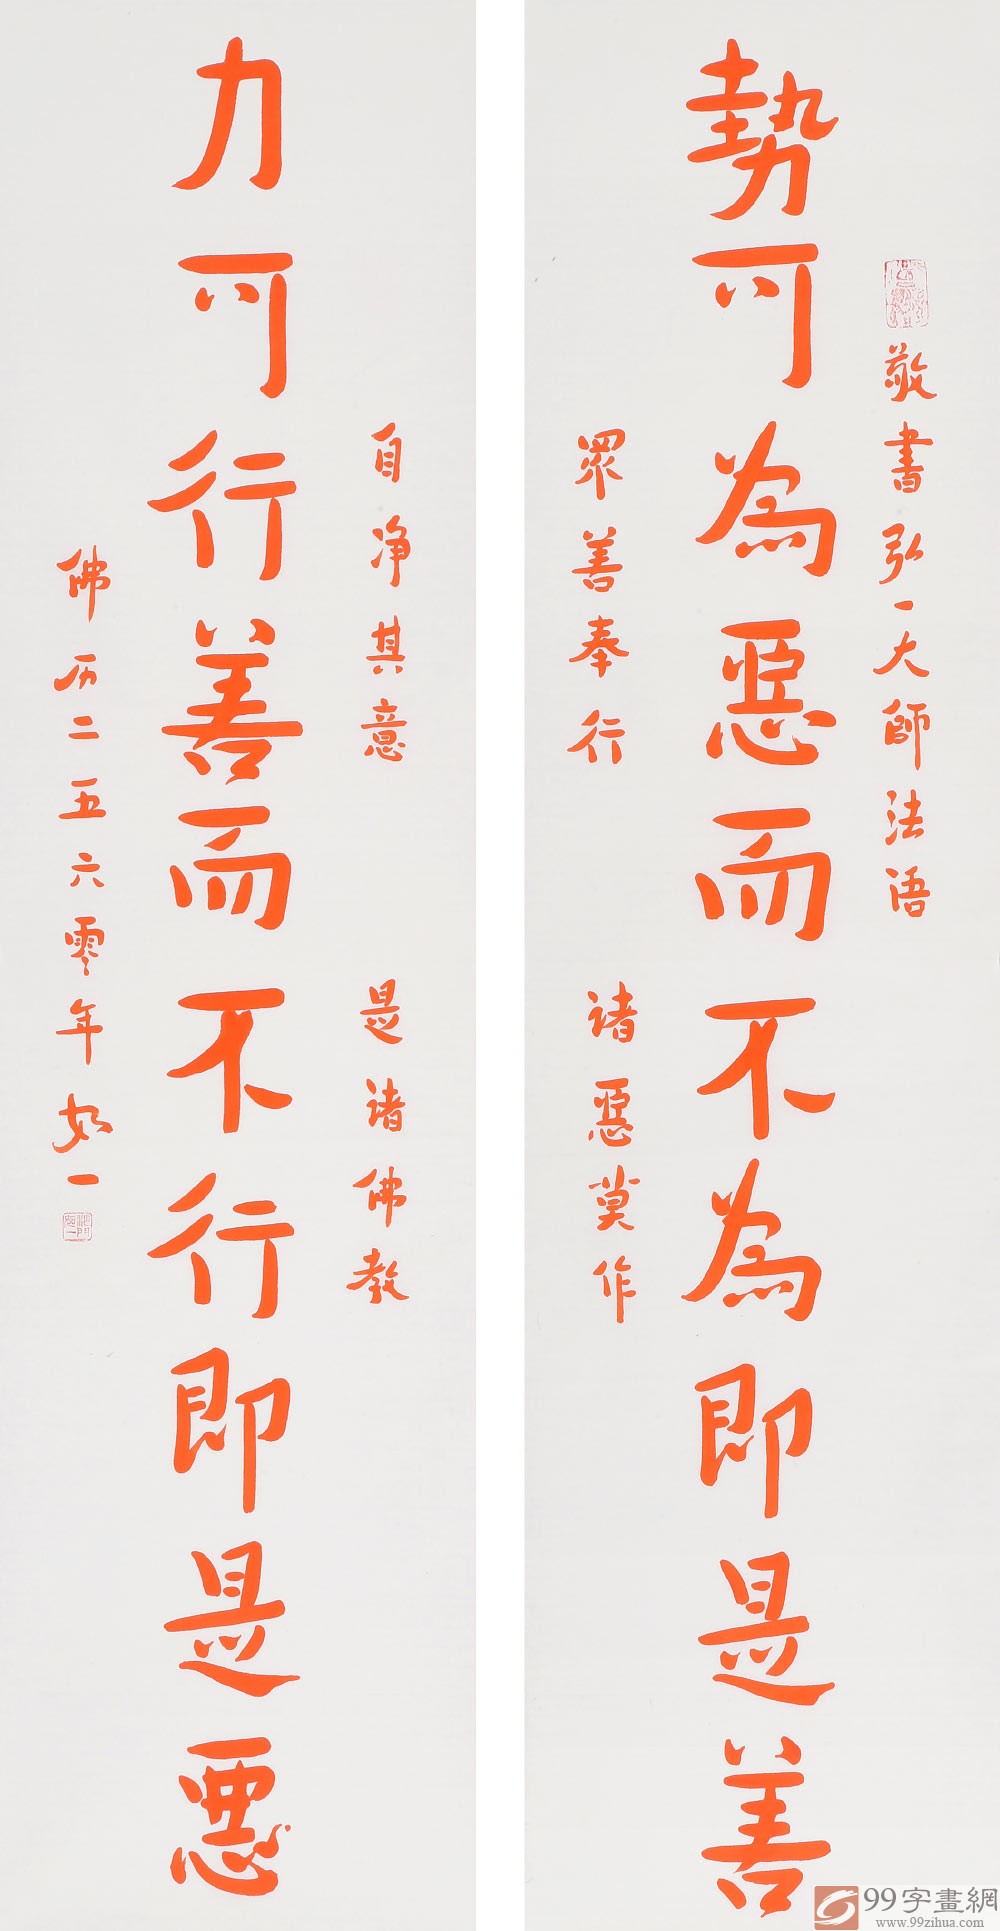 敬書弘一大師法语
勢可為惡而不為即是善
眾善奉行
诸惡莫作
自净其意
是诸佛教
力可行善而不行即是惡
佛历二五六零年如一
沙門如一
99字畫網
www.99zihua.com